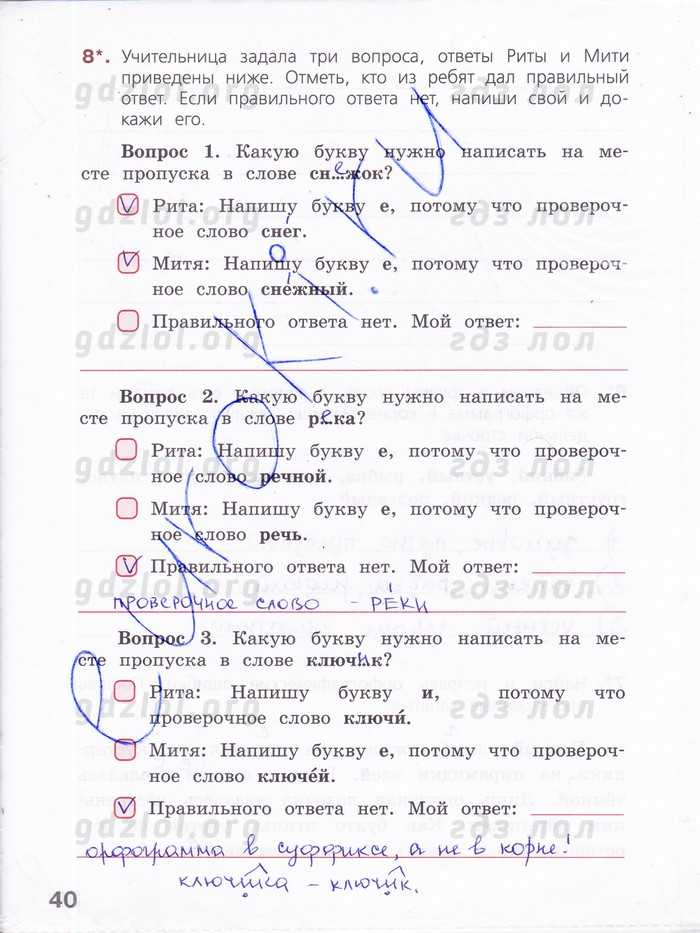 8*. Учительница задала три вопроса, ответы Риты и Мити
приведены ниже. Отметь, кто из ребят дал правильный
gdzlol.org гдз лол
ответ. Если правильного ответа нет, напиши свой и до-
кажи его.
Вопрос 1. Какую букву нужно написать на ме-
сте пропуска в слове сн...жок?
е
Рита: Напишу букву е, потому что провероч-
gdzlol.org гдз лол
ное слово снег.
Митя: Напишу букву е, потому что провероч-
ное слово сне́жный.
Правильного ответа нет. Мой ответ:
gdzlol.org гдз лол
Вопрос 2. Какую букву нужно написать на ме-
сте пропуска в слове р...ка?
Рита: Напишу букву е, потому что провероч-
gdzlol.org гдз лол
ное слово речной.
Митя: Напишу букву е, потому что провероч-
ное слово речь.
Правильного ответа нет. Мой ответ:
gdzlol.org гдз лол
проверочное слово - ре́ки
Вопрос 3. Какую букву нужно написать на ме-
сте пропуска в слове ключик?
Рита: Напишу букву и, потому что
gdzlol.org гдз лол
проверочное слово ключи́.
Митя: Напишу букву е, потому что провероч-
ное слово ключе́й.
Правильного ответа нет. Мой ответ:
gdzlol.org гдз лол
орфограмма в суффиксе, а не в корне!
ключика - ключик.
40